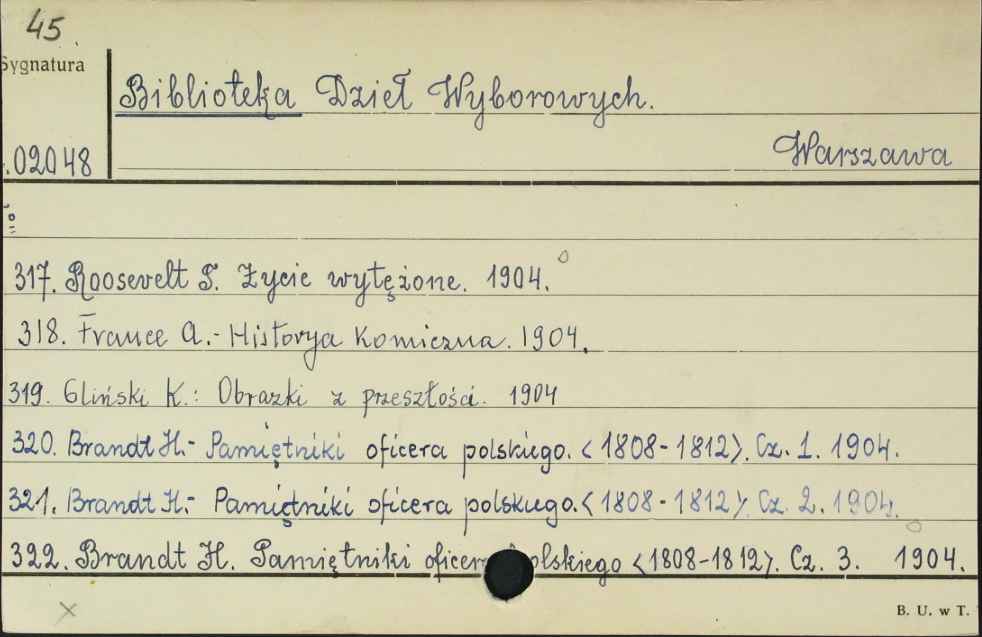 45.
Sygnatura
Biblioteka Dzieł Wyborowych.
Warszawa
.02048
317. Roosevelt T. Życie wytężone. 1904.
318. France A.- Historya Komiczna. 1904.
319. Gliński K.: Obrazki z przeszłości. 1904
320. Brandt H.- Pamiętniki oficera polskiego. <1808-1812>. Cz. 1. 1904.
321. Brandt H.- Pamiętniki oficera polskiego. <1808-1812>. Cz. 2. 1904.
322. Brandt H. Pamiętniki oficera polskiego <1808-1812>. Cz. 3. 1904.
B. U. w T.